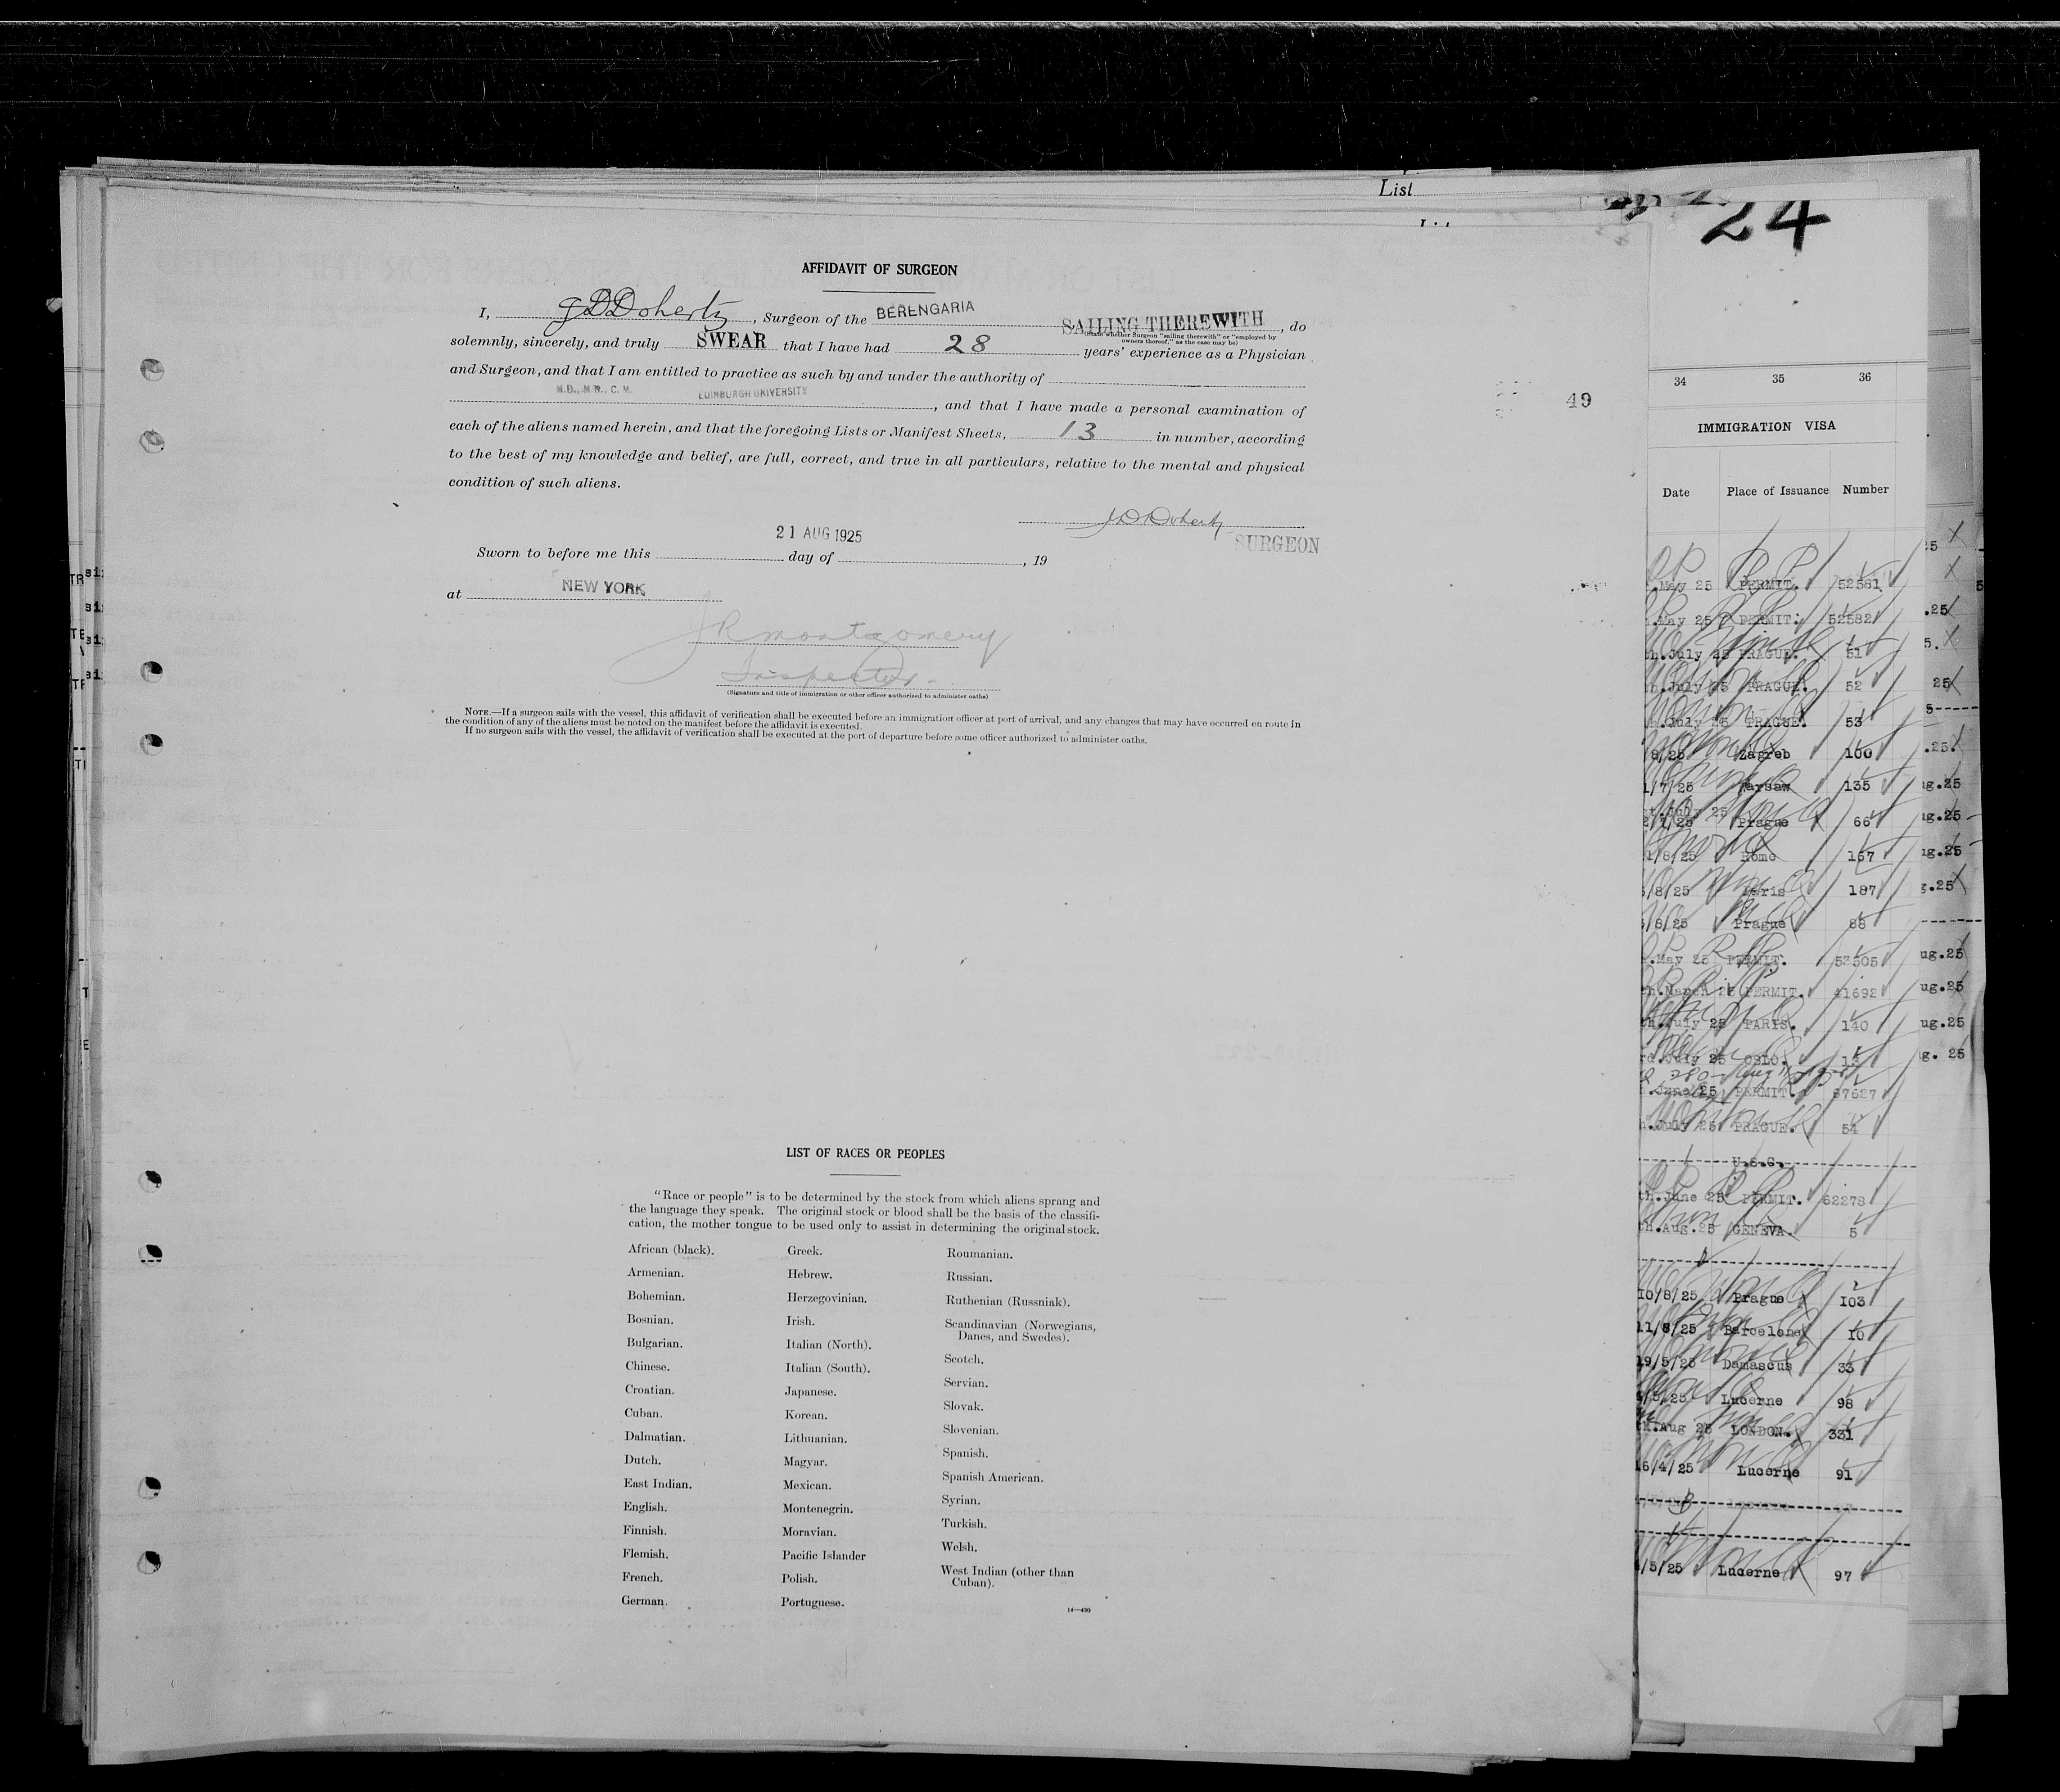 List
24
AFFIDAVIT OF SURGEON
I, J D Doherty, Surgeon of the BERENGARIA SAILING THEREWITH, do
(State whether Surgeon "sailing therewith" or "employed by
owners thereof," as the case may be)
solemnly, sincerely, and truly SWEAR that I have had 28 years' experience as a Physician
and Surgeon, and that I am entitled to practice as such by and under the authority of
M.D., M.B., C.M. EDINBURGH UNIVERSITY, and that I have made a personal examination of
each of the aliens named herein, and that the foregoing Lists or Manifest Sheets, 13 in number, according
to the best of my knowledge and belief, are full, correct, and true in all particulars, relative to the mental and physical
condition of such aliens.
J D Doherty
SURGEON
21 AUG 1925
Sworn to before me this day of , 19
at NEW YORK
J R Montgomery
Inspector
(Signature and title of immigration or other officer authorized to administer oaths)
NOTE.—If a surgeon sails with the vessel, this affidavit of verification shall be executed before an immigration officer at port of arrival, and any changes that may have occurred en route in
the condition of any of the aliens must be noted on the manifest before the affidavit is executed.
If no surgeon sails with the vessel, the affidavit of verification shall be executed at the port of departure before some officer authorized to administer oaths.
49
LIST OF RACES OR PEOPLES
"Race or people" is to be determined by the stock from which aliens sprang and
the language they speak. The original stock or blood shall be the basis of the classifi-
cation, the mother tongue to be used only to assist in determining the original stock.
African (black).
Armenian.
Bohemian.
Bosnian.
Bulgarian.
Chinese.
Croatian.
Cuban.
Dalmatian.
Dutch.
East Indian.
English.
Finnish.
Flemish.
French.
German.
Greek.
Hebrew.
Herzegovinian.
Irish.
Italian (North).
Italian (South).
Japanese.
Korean.
Lithuanian.
Magyar.
Mexican.
Montenegrin.
Moravian.
Pacific Islander
Polish.
Portuguese.
Roumanian.
Russian.
Ruthenian (Russniak).
Scandinavian (Norwegians,
Danes, and Swedes).
Scotch.
Servian.
Slovak.
Slovenian.
Spanish.
Spanish American.
Syrian.
Turkish.
Welsh.
West Indian (other than
Cuban).
14—430
34 35 36
IMMIGRATION VISA
Date Place of Issuance Number
May 25 PERMIT. 52581
May 25 PERMIT. 52582
July 25 PRAGUE. 51
July 25 PRAGUE. 52
July 25 PRAGUE. 53
8/25 Zagreb 100
1/7/25 Warsaw 135
Prague 66
1/8/25 Rome 167
/8/25 Paris 187
/8/25 Prague 88
May 25 PERMIT. 53505
March 25 PERMIT. 41692
July 25 PARIS. 140
July 25 OSLO.
June 25 PERMIT 67627
July 25 PRAGUE. 54
U.S.C.
June 25 PERMIT. 62278
Aug.25 GENEVA. 5
10/8/25 Prague 103
11/8/25 Barcelona 10
19/5/25 Damascus 33
/5/25 Lucerne 98
Aug 25 LONDON. 331
16/4/25 Lucerne 91
/5/25 Lucerne 97